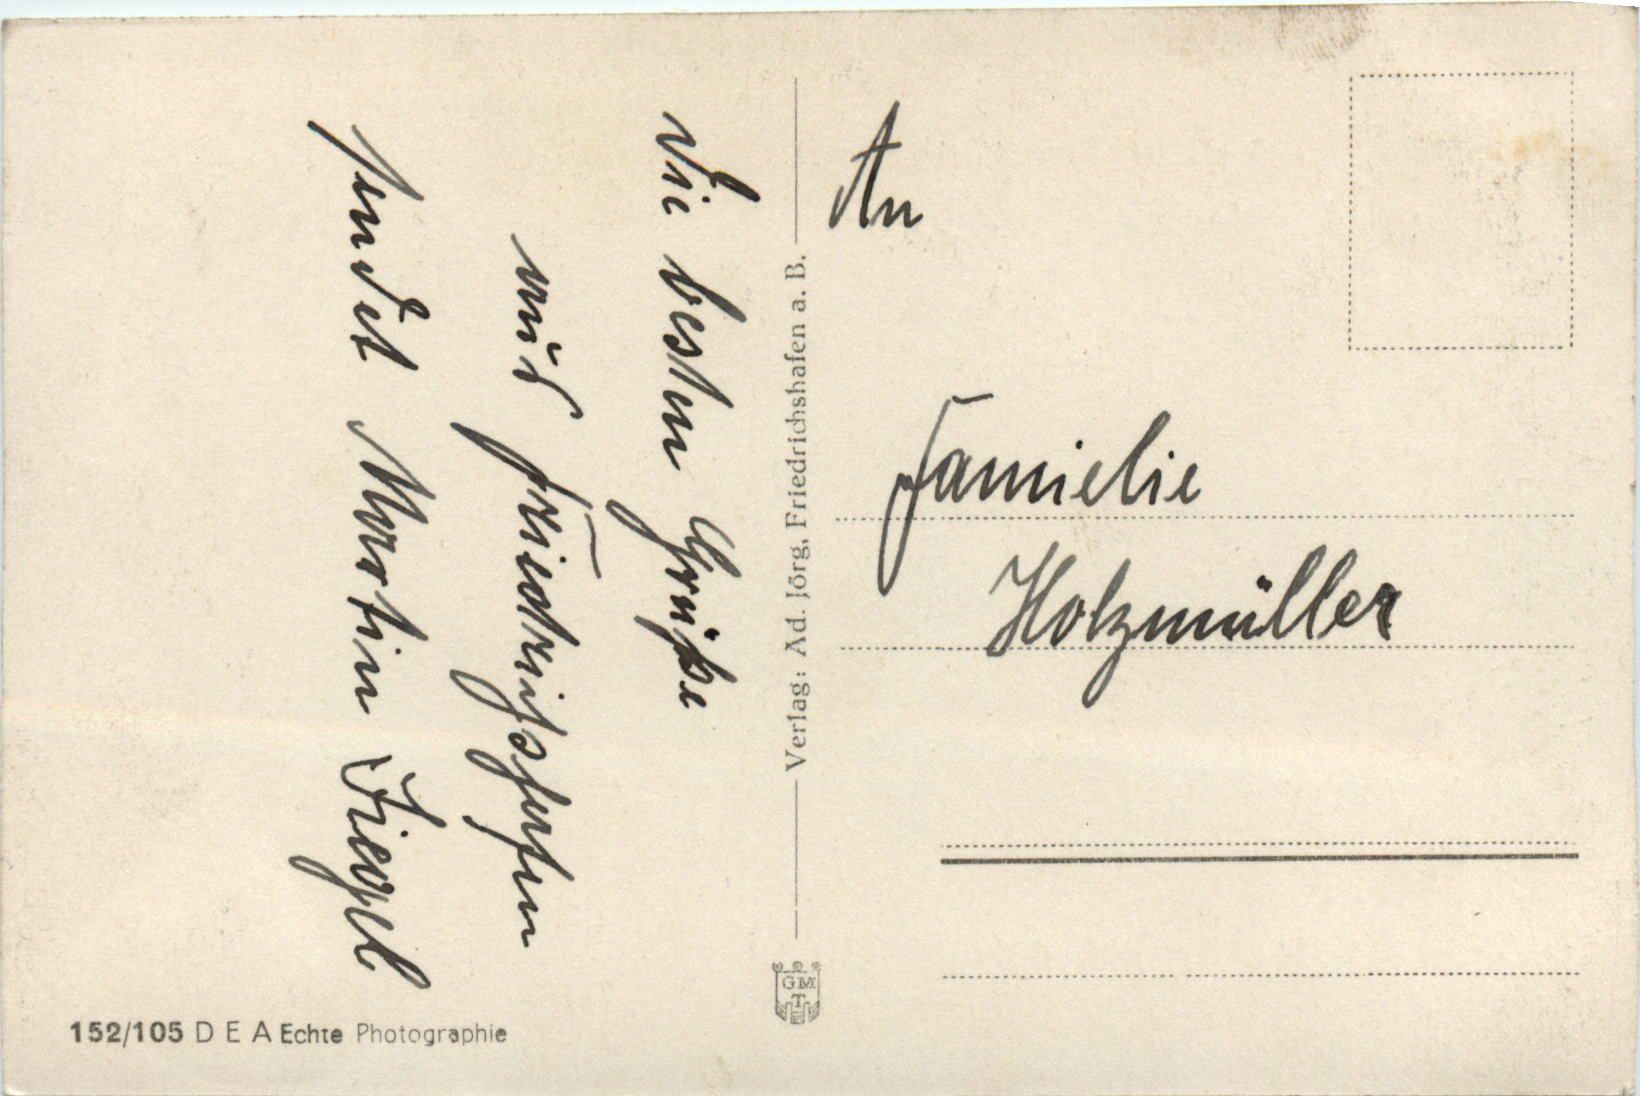 Die besten Grüße
aus Friedrichshafen
sendet Martin
Verlag: Ad. Jörg, Friedrichshafen a. B.
GM
T
An
Famielie
Holzmüller
152/105 D E A Echte Photographie